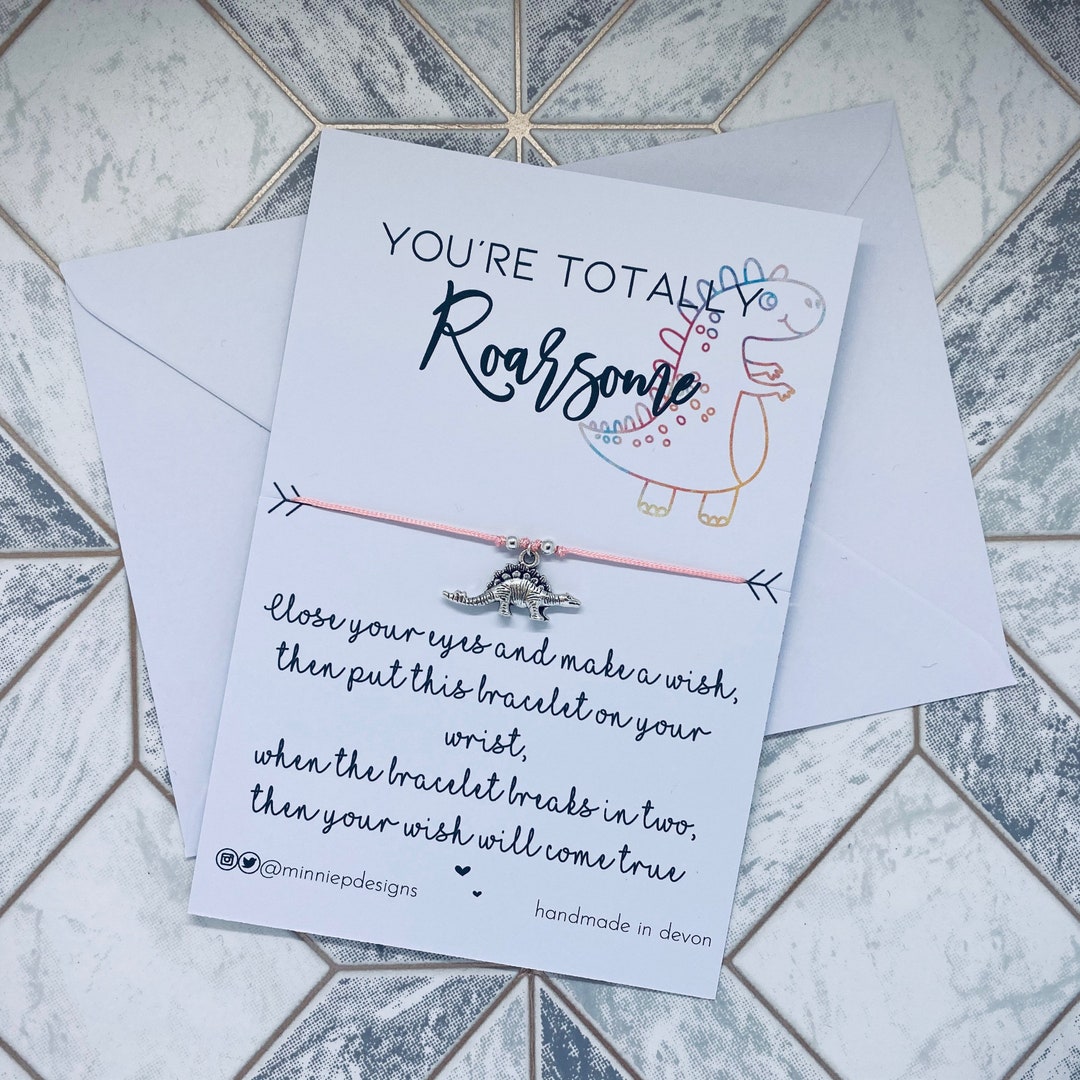 YOU'RE TOTALLY
Roarsome
Close your eyes and make a wish,
then put this bracelet on your
wrist,
when the bracelet breaks in two,
then your wish will come true
@minniepdesigns
handmade in devon